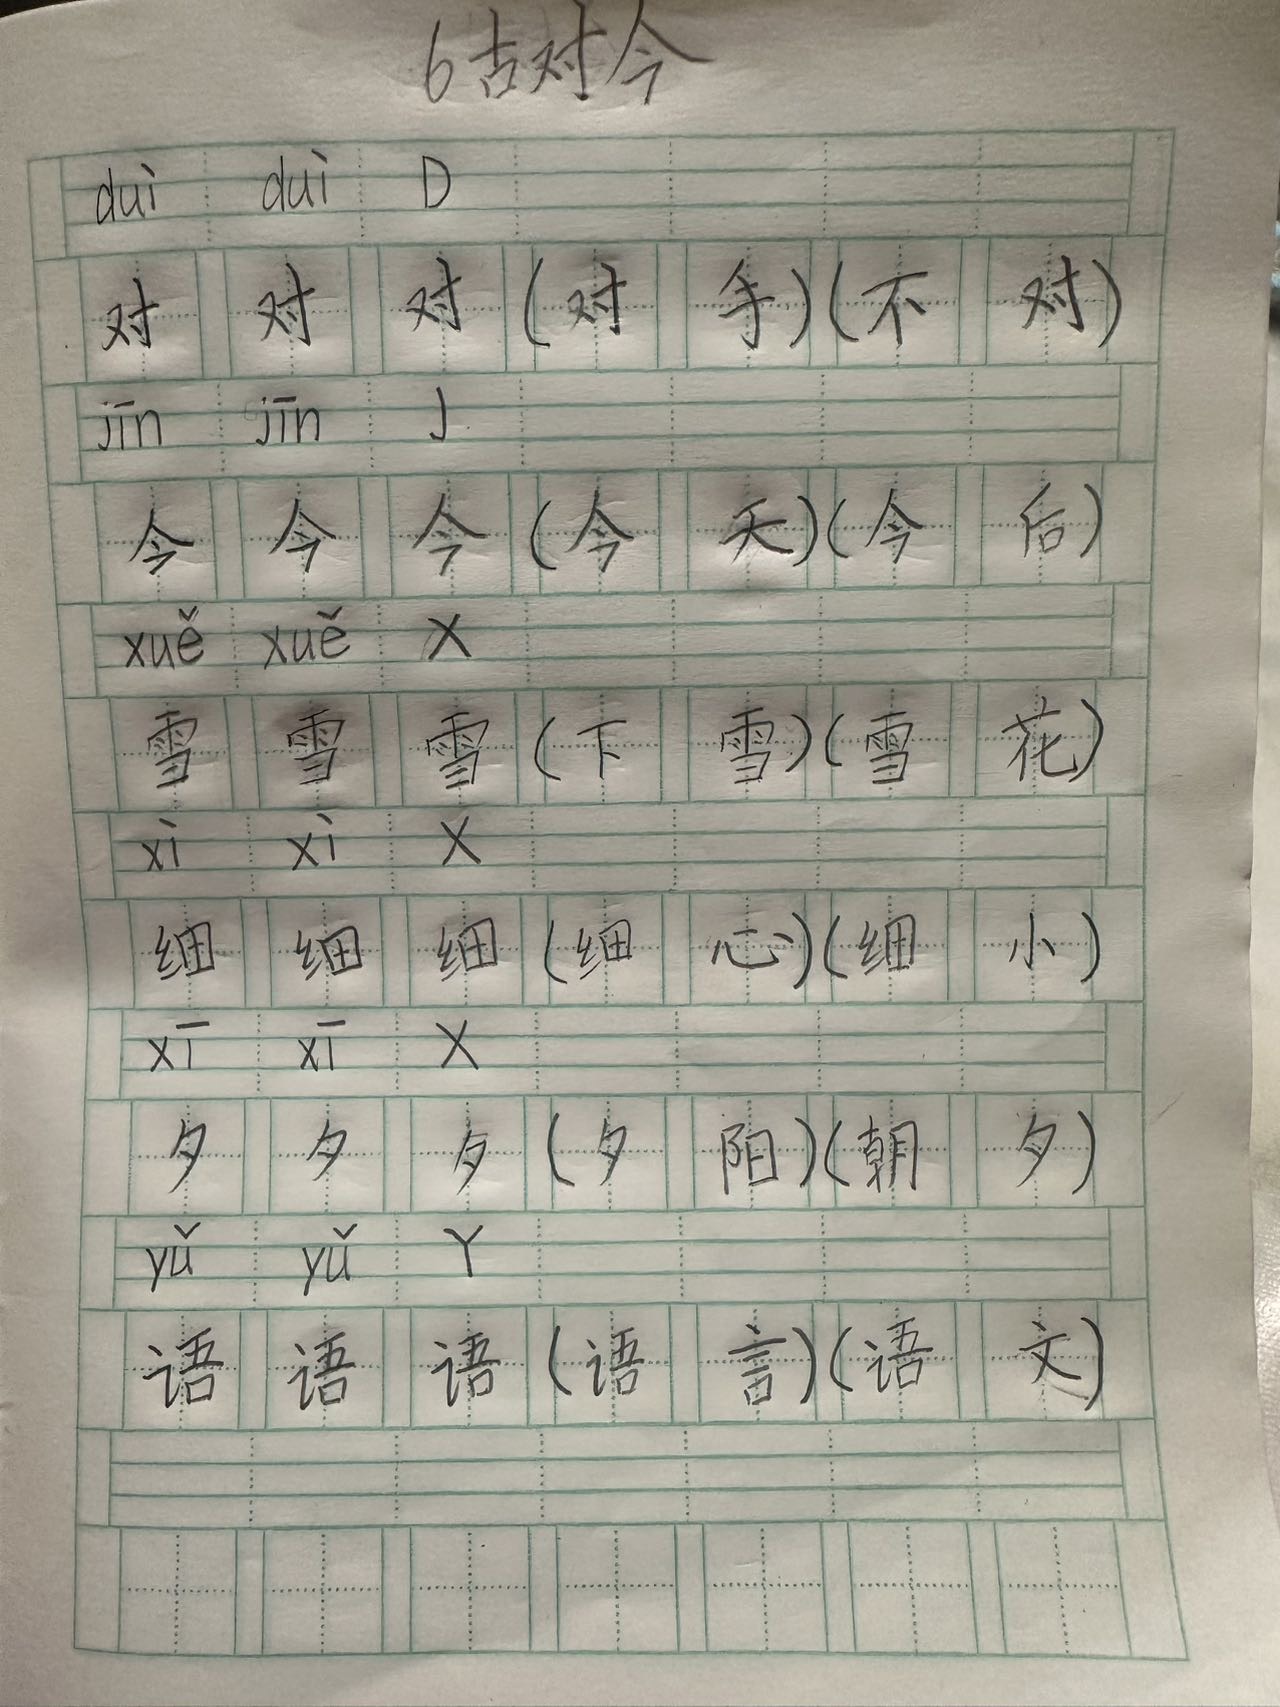 6古对今
duì duì D
对对对(对手)(不对)
jīn jīn J
今今今(今天)(今后)
xuě xuě X
雪雪雪(下雪)(雪花)
xì xì X
细细细(细心)(细小)
xī xī X
夕夕夕(夕阳)(朝夕)
yǔ yǔ Y
语语语(语言)(语文)